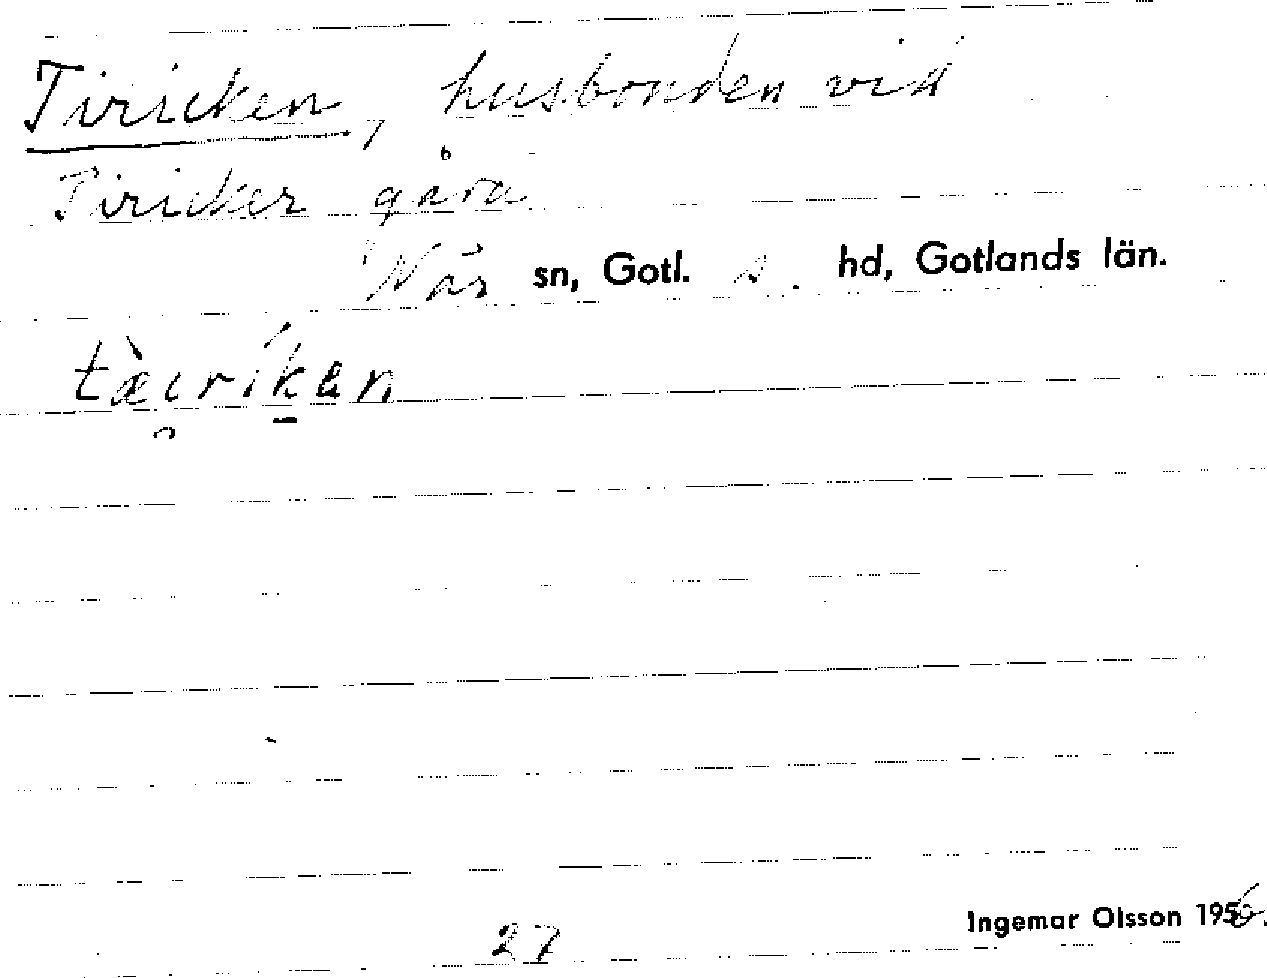 Tiricken, husbonden vid
Tiricker gård
Näs sn, Gotl. s. hd, Gotlands län.
tæ̀i̯ríkän
27
Ingemar Olsson 1956.